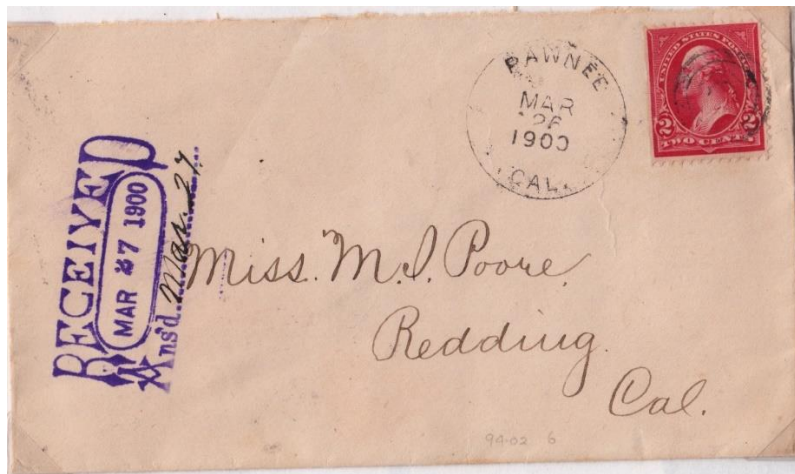 PAWNEE
MAR
26
1900
CAL.
UNITED STATES POSTAGE
2 2
TWO CENTS
RECEIVED
MAR 27 1900
Ans'd Mar. 27
Miss. M. I. Poore,
Redding.
Cal.
94-02 6